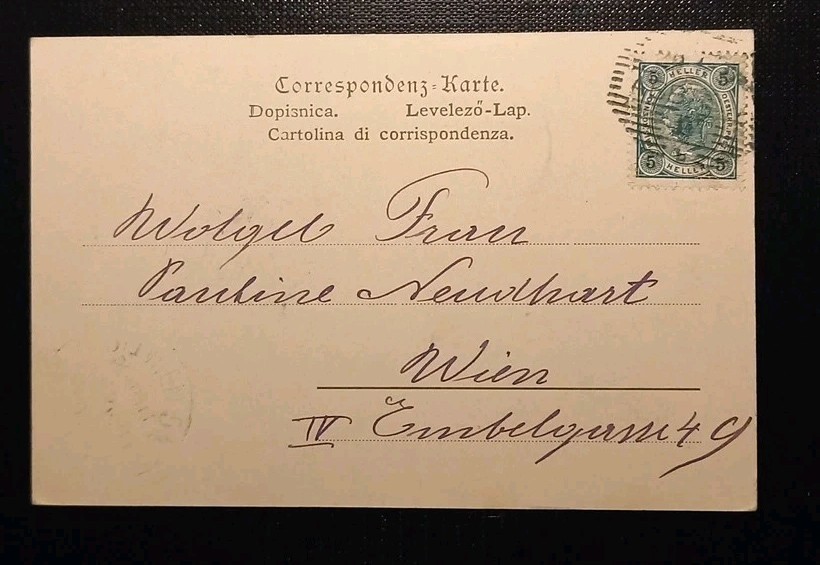 Correspondenz-Karte.
Dopisnica. Levelező-Lap.
Cartolina di corrispondenza.
5 HELLER 5
5 HELLER 5
Wolgeb Frau
Pauline Neudhart
Wien
IV 49